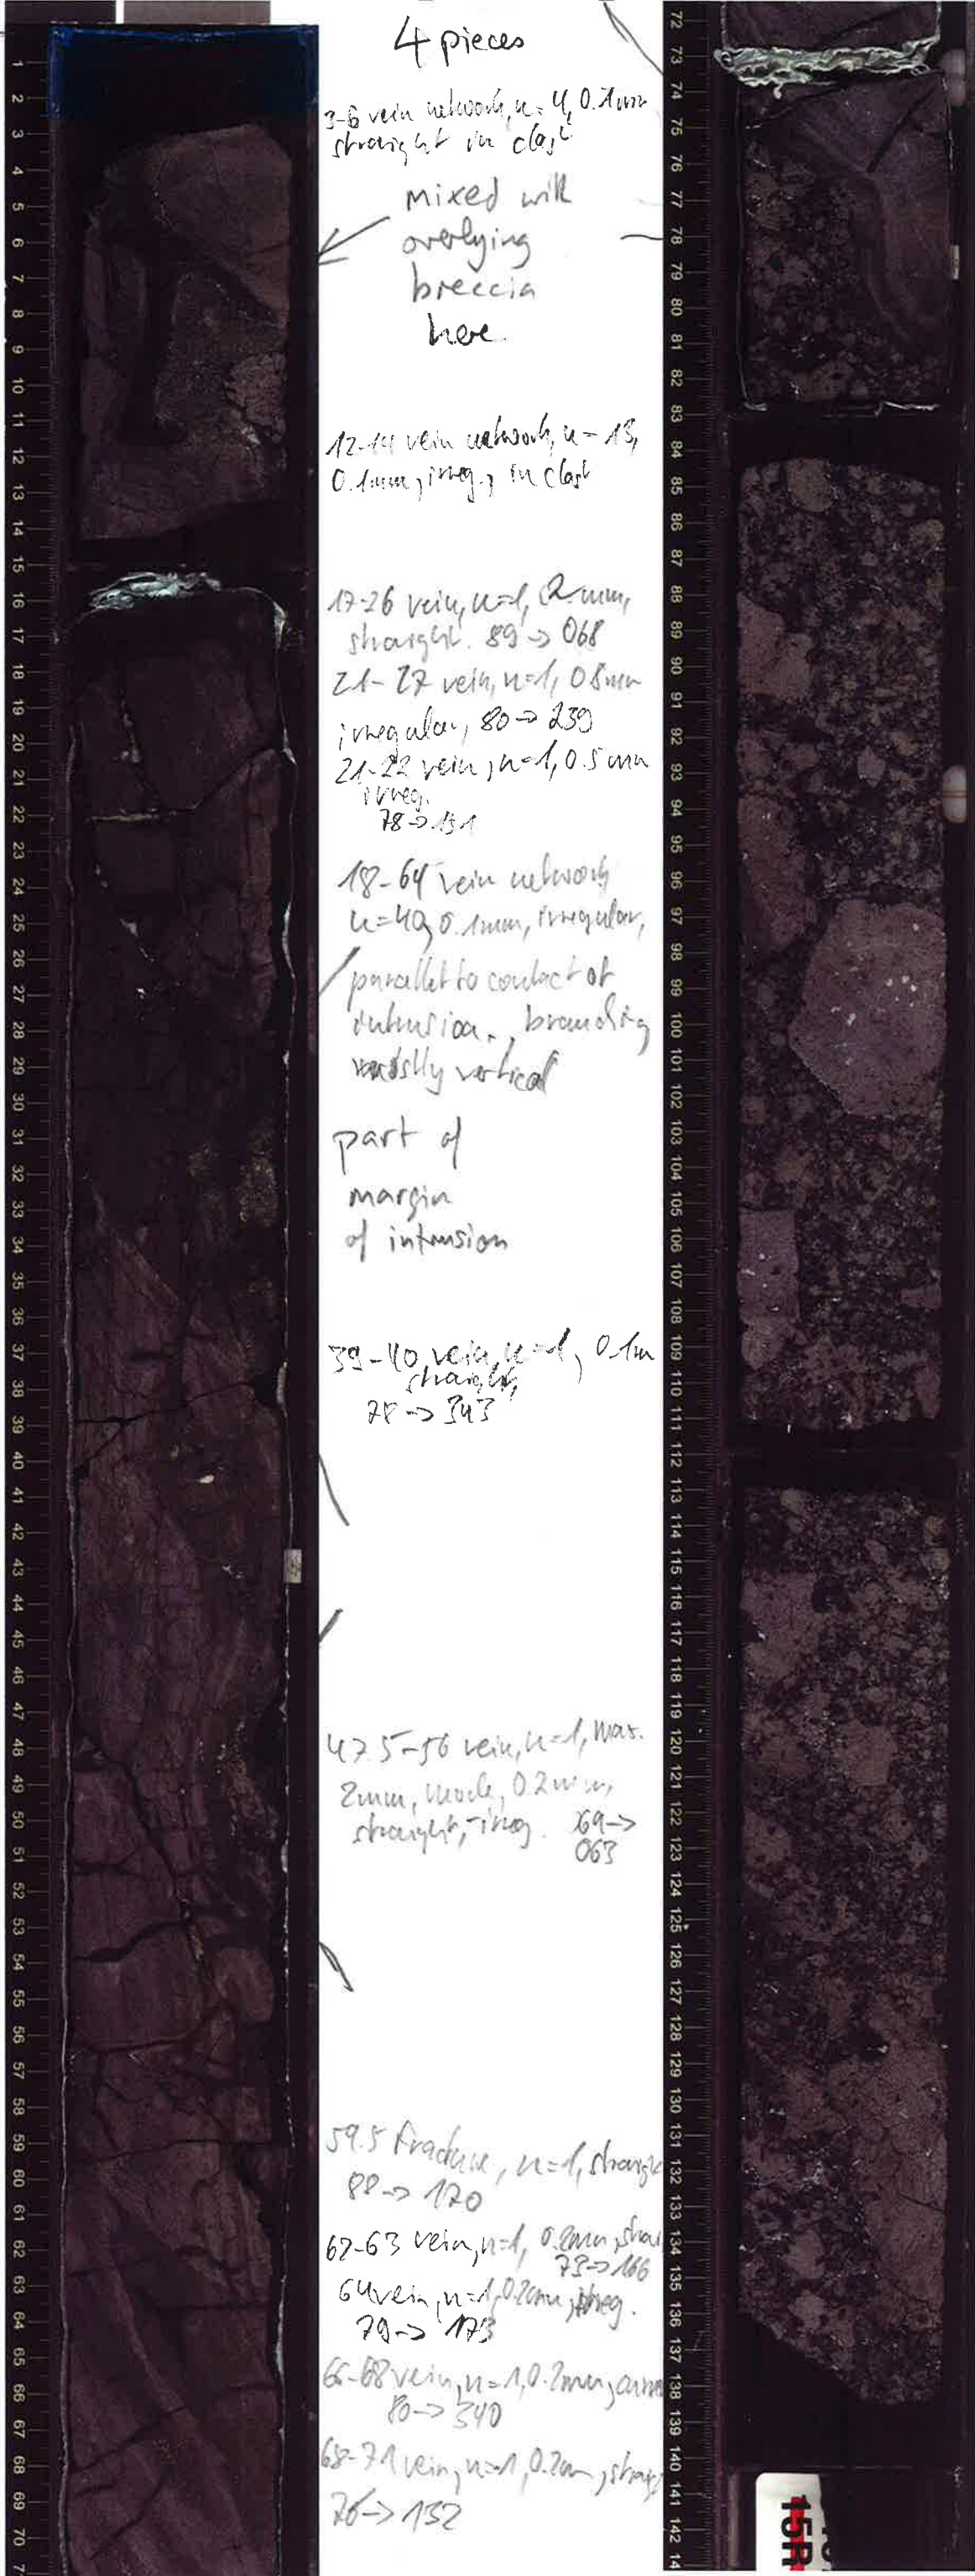 4 pieces
3-6 vein network, n=4, 0.1mm
straight in clast
mixed with
overlying
breccia
here.
12-14 vein network, n=13,
0.1mm, irreg., in clast
17-26 vein, n=1, 2mm,
straight. 89->068
21-27 vein, n=1, 0.8mm
irregular, 80->239
21-22 vein, n=1, 0.5mm
irreg.
78->
18-64 vein network
0.1mm, irregular,
parallel to contact of
intrusion., branching
mostly vertical
part of
margin
of intrusion
39-40 vein, n=1, 0.1m
straight,
78->343
47.5-56 vein, n=1, max.
2mm, mode, 0.2mm,
straight,-irreg. 69->
063
59.5 fracture, n=1, straight
88->170
62-63 vein, n=1, 0.2mm, strai
73->166
64 vein, n=1, 0.2mm, irreg.
79->173
66-68 vein, n=1, 0.2mm,
80->340
68-71 vein, n=1, 0.2mm,
76->132
1
2
3
4
5
6
7
8
9
10
11
12
13
14
15
16
17
18
19
20
21
22
23
24
25
26
27
28
29
30
31
32
33
34
35
36
37
38
39
40
41
42
43
44
45
46
47
48
49
50
51
52
53
54
55
56
57
58
59
60
61
62
63
64
65
66
67
68
69
70
72
73
74
75
76
77
78
79
80
81
82
83
84
85
86
87
88
89
90
91
92
93
94
95
96
97
98
99
100
101
102
103
104
105
106
107
108
109
110
111
112
113
114
115
116
117
118
119
120
121
122
123
124
125
126
127
128
129
130
131
132
133
134
135
136
137
138
139
140
141
142
14
15R